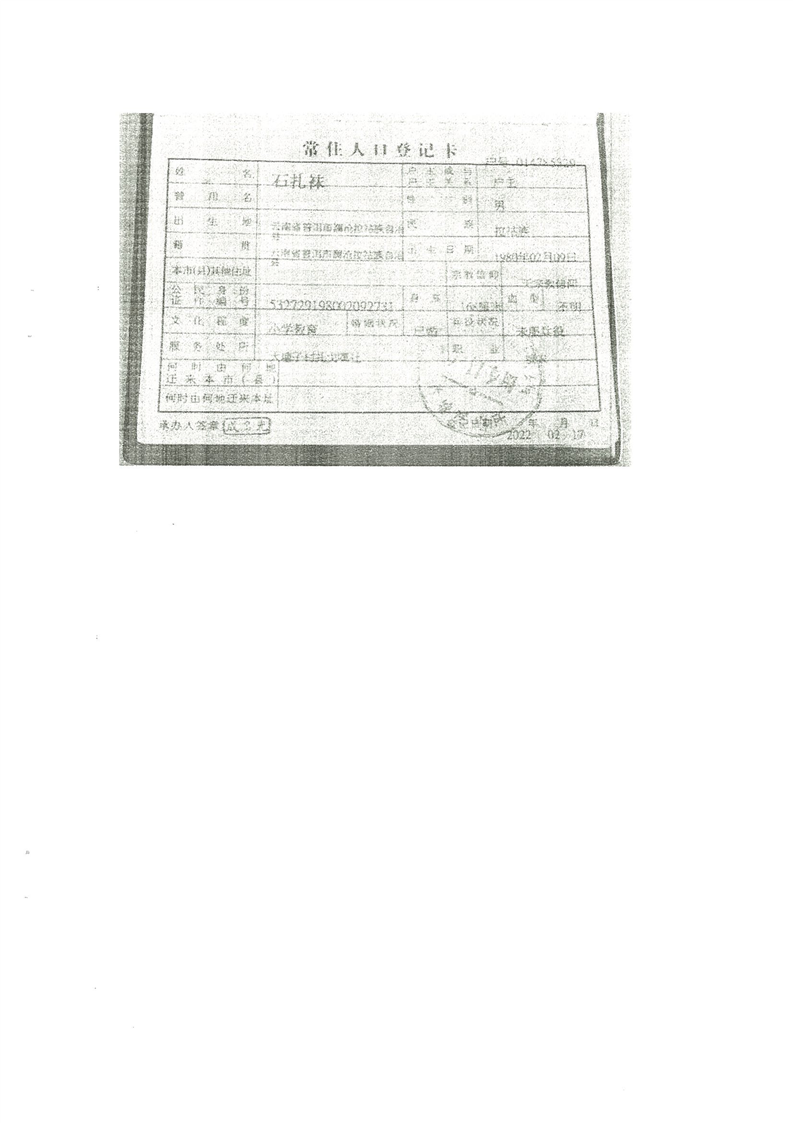 常住人口登记卡
户号 014285529
姓名 石扎袜 户主或与户主关系 户主
曾用名 性别 男
出生地 云南省普洱市澜沧拉祜族自治县 民族 拉祜族
籍贯 云南省普洱市澜沧拉祜族自治县 出生日期 1980年02月09日
本市(县)其他住址 宗教信仰 无宗教信仰
公民身份证件编号 532729198002092731 身高 血型 不明
文化程度 小学教育 婚姻状况 已婚 兵役状况 未服兵役
服务处所 职业
何时由何地迁来本市(县)
何时由何地迁来本址
承办人签章 登记日期 年 月 日
2022 02 17